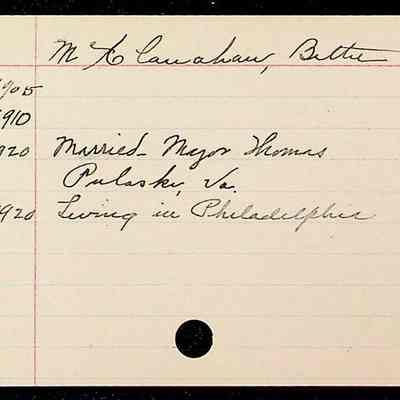 McClanahan, Bettie
1905
1910
1920 Married - Major Thomas
Pulaski, Va.
1920 Living in Philadelphia